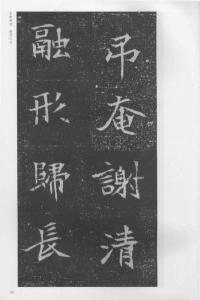 弔庵謝清
融形歸長